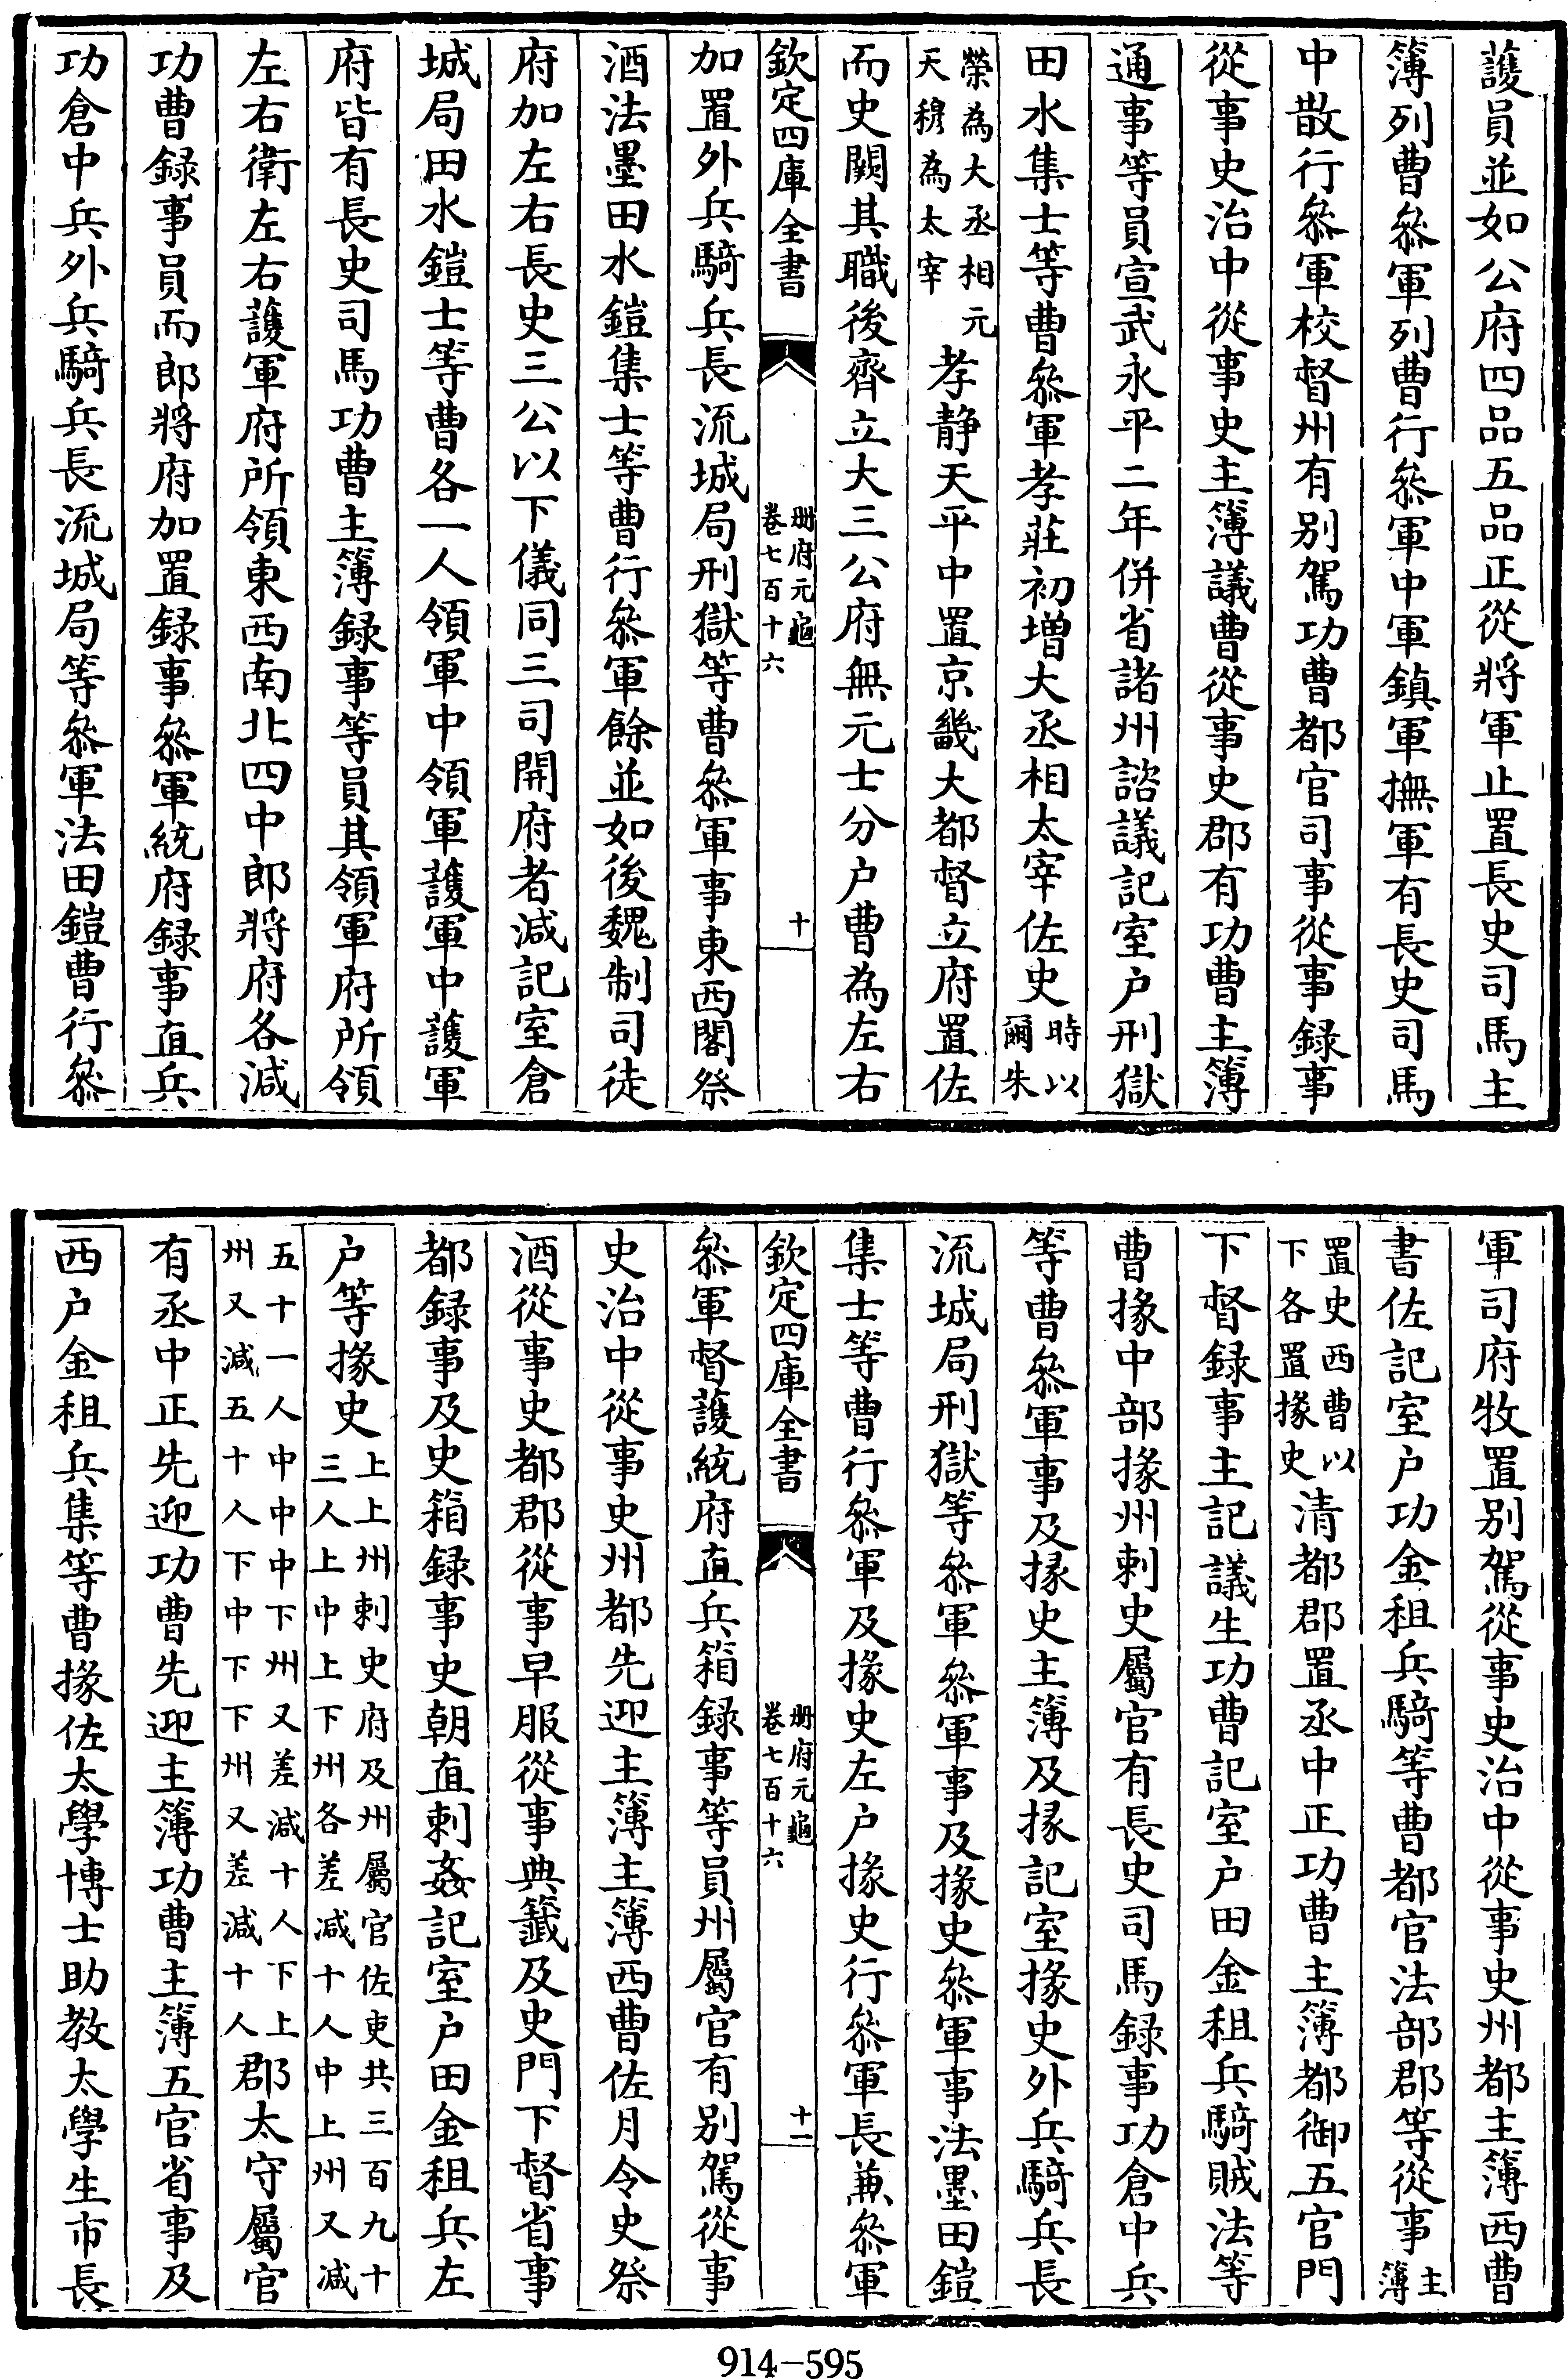 護員並如公府四品五品正從將軍止置長史司馬主
簿列曹叅軍列曹行叅軍中軍鎮軍撫軍有長史司馬
中散行叅軍校督州有别駕功曹都官司事從事録事
從事史治中從事史主簿議曹從事史郡有功曹主簿
通事等員宣武永平二年併省諸州諮議記室户刑獄
田水集士等曹叅軍孝莊初增大丞相太宰佐史時以爾朱
榮為大丞相元天穆為太宰孝静天平中置京畿大都督立府置佐
而史闕其職後齊立大三公府無元士分户曹為左右
欽定四庫全書
册府元龜
卷七百十六
十
加置外兵騎兵長流城局刑獄等曹叅軍事東西閣祭
酒法墨田水鎧集士等曹行叅軍餘並如後魏制司徒
府加左右長史三公以下儀同三司開府者减記室倉
城局田水鎧士等曹各一人領軍中領軍護軍中護軍
府皆有長史司馬功曹主簿録事等員其領軍府所領
左右衛左右護軍府所領東西南北四中郎將府各減
功曹録事員而郎將府加置録事叅軍統府録事直兵
功倉中兵外兵騎兵長流城局等叅軍法田鎧曹行叅
軍司府牧置别駕從事史治中從事史州都主簿西曹
書佐記室户功金租兵騎等曹都官法部郡等從事主簿
置史西曹以下各置掾史清都郡置丞中正功曹主簿都御五官門
下督録事主記議生功曹記室户田金租兵騎賊法等
曹掾中部掾州刺史屬官有長史司馬録事功倉中兵
等曹叅軍事及掾史主簿及掾記室掾史外兵騎兵長
流城局刑獄等叅軍叅軍事及掾史叅軍事法墨田鎧
集士等曹行叅軍及掾史左户掾史行叅軍長兼叅軍
欽定四庫全書
册府元龜
卷七百十六
十一
叅軍督護統府直兵箱録事等員州屬官有别駕從事
史治中從事史州都先迎主簿主簿西曹佐月令史祭
酒從事史都郡從事早服從事典籤及史門下督省事
都録事及史箱録事史朝直刺姦記室户田金租兵左
户等掾史上上州刺史府及州屬官佐吏共三百九十三人上中上下州各差减十人中上州又減
五十一人中中中下州又差減十人下上州又減五十人下中下下州又差減十人郡太守屬官
有丞中正先迎功曹先迎主簿功曹主簿五官省事及
西户金租兵集等曹掾佐太學博士助教太學生市長
914-595